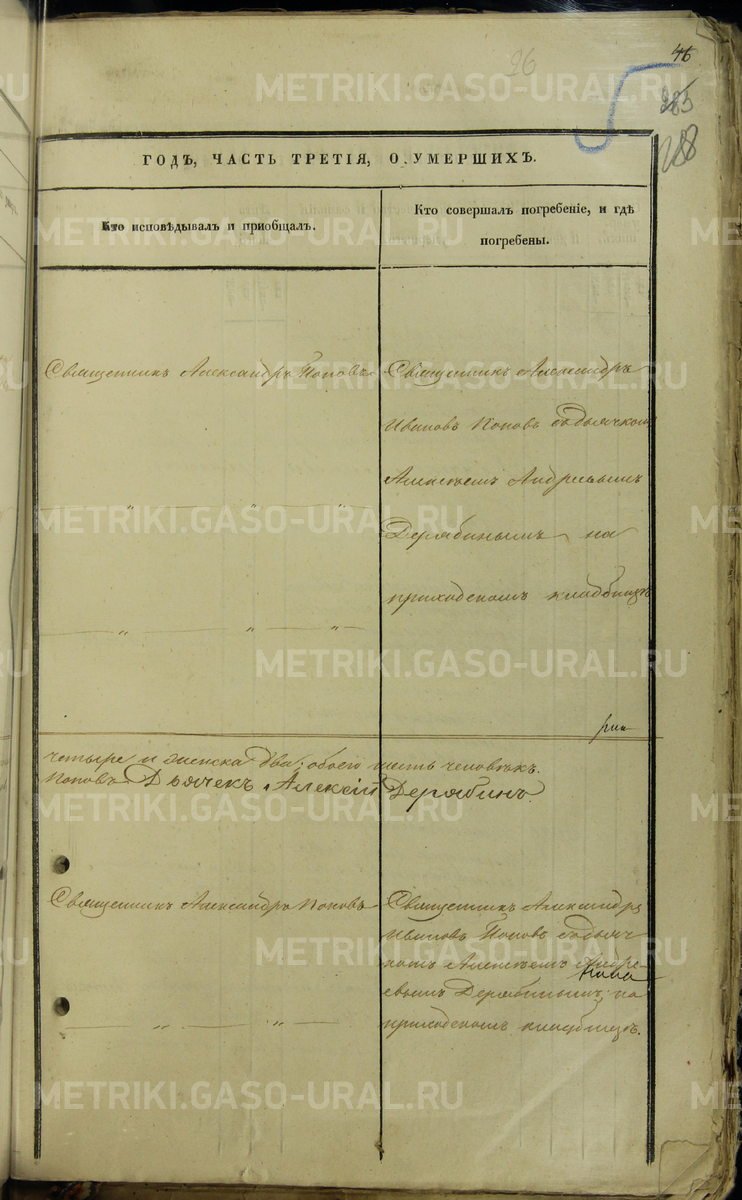 26
46
283
288
ГОДЪ, ЧАСТЬ ТРЕТІЯ, О УМЕРШИХЪ.
Кто исповѣдывалъ и пріобщалъ.
Кто совершалъ погребеніе, и гдѣ
погребены.
Священникъ Александръ Поповъ
Священникъ Александръ
Ивановъ Поповъ съ дьячкомъ
Алексѣемъ Андреевымъ
Дерябинымъ на
приходскомъ кладбищѣ
четыре и женска два; обоего шесть человѣкъ.
Поповъ Дьячекъ Алексій Дерябинъ.
Священникъ Александръ Поповъ
Священникъ Александръ
Ивановъ Поповъ съ дьяч
комъ Алексѣемъ Андре-
евымъ Дерябинымъ; на
приходскомъ кладбищѣ.
METRIKI.GASO-URAL.RU